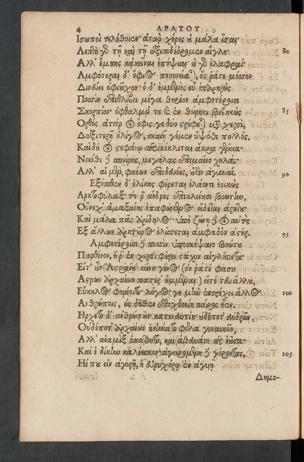 4 ΑΡΑΤΟΥ
Ἰσωποὶ τελέθοιεν ἀτὰρ χέρες οὐ μάλα ἶσαι.
Λεπτὴ γὰρ τῇ καὶ τῇ ἐπιδέδρομεν αἴγλη. 80
Ἀλλ' ἔμπης κἀκεῖναι ἐπόψιαι οὐ γὰρ ἐλαφραί.
Ἀμφότεραι δ' ὄφιος πεπονείαται, ὅς ῥάτε μέσσον
Δινεύει ὀφιοῦχον· ὁ δ' ἐμμενὲς εὖ ἐπαρηρὼς
Ποσσὶν ἐπιθλίβει μέγα θηρίον ἀμφοτέροισι
Σκορπίον ὀφθαλμῷ τε καὶ ἐν θώρηκι βεβηκὼς 85
Ὀρθὸς ἀτὰρ οἱ ὄφις γε δύο στρέφεται μετὰ χερσὶ,
Δεξιτερῇ ὀλίγος, σκαιῇ γέμεν ὑψόθι πολλός.
Καὶ δή οἱ στεφάνῳ παρακέκλιται ἄκρα γένεια.
Νειόθι δὲ σπείρης, μεγάλας ἐπιμαίεο χηλάς·
Ἀλλ' αἱ μὲν, φαέων ἐπιδευέες, οὐδὲν ἀγαυαί. 90
Ἐξόπιθεν δ' ἑλίκης φέρεται ἐλάοντι ἐοικὼς
Ἀρκτοφύλαξ τόν ῥ' ἄνδρες ἐπικλείουσι βοώτην,
Οὕνεχ' ἁμαξαίης ἐπαφώμενος εἴδεται ἄρκτου.
Καὶ μάλα πᾶς ἀρίδηλος· ὑπὸ ζώνῃ δέ οἱ αὐτὸς
Ἐξ ἄλλων ἀρκτοῦρος ἑλίσσεται ἀμφαδὸν ἀστὴρ. 95
Ἀμφοτέροισι δὲ ποσσὶν ὑποσκέψαιο βοώτεω
Παρθένον, ἥ ῥ' ἐν χερσὶ φέρει στάχυν αἰγλήεντα·
Εἴτ' οὖν Ἀστραίου κείνη γένος (ὅν ῥά τέ φασιν
Ἄστρων ἀρχαῖον πατέρ' ἔμμεναι) εἴτέ του ἄλλου,
Εὔκηλος φορέοιτο· λόγος γεμὲν ἐντρέχει ἄλλος 100
Ἀνθρώποις, ὡς δῆθεν ἐπιχθονίη πάρος ἦεν.
Ἤρχετο δ' ἀνθρώπων κατεναντίη· οὐδέποτ' ἀνδρῶν,
Οὐδέποτ' ἀρχαίων ἠνήνατο φῦλα γυναικῶν,
Ἀλλ' ἀναμὶξ ἐκάθητο, καὶ ἀθανάτη περ ἐοῦσα·
Καί ἑ δίκην καλέεσκον· ἀγειρομένη δὲ γέροντας, 105
Ἠέ που εἰν ἀγορῇ, ἢ εὐρυχόρῳ ἐν ἀγυιῇ
Δημο-